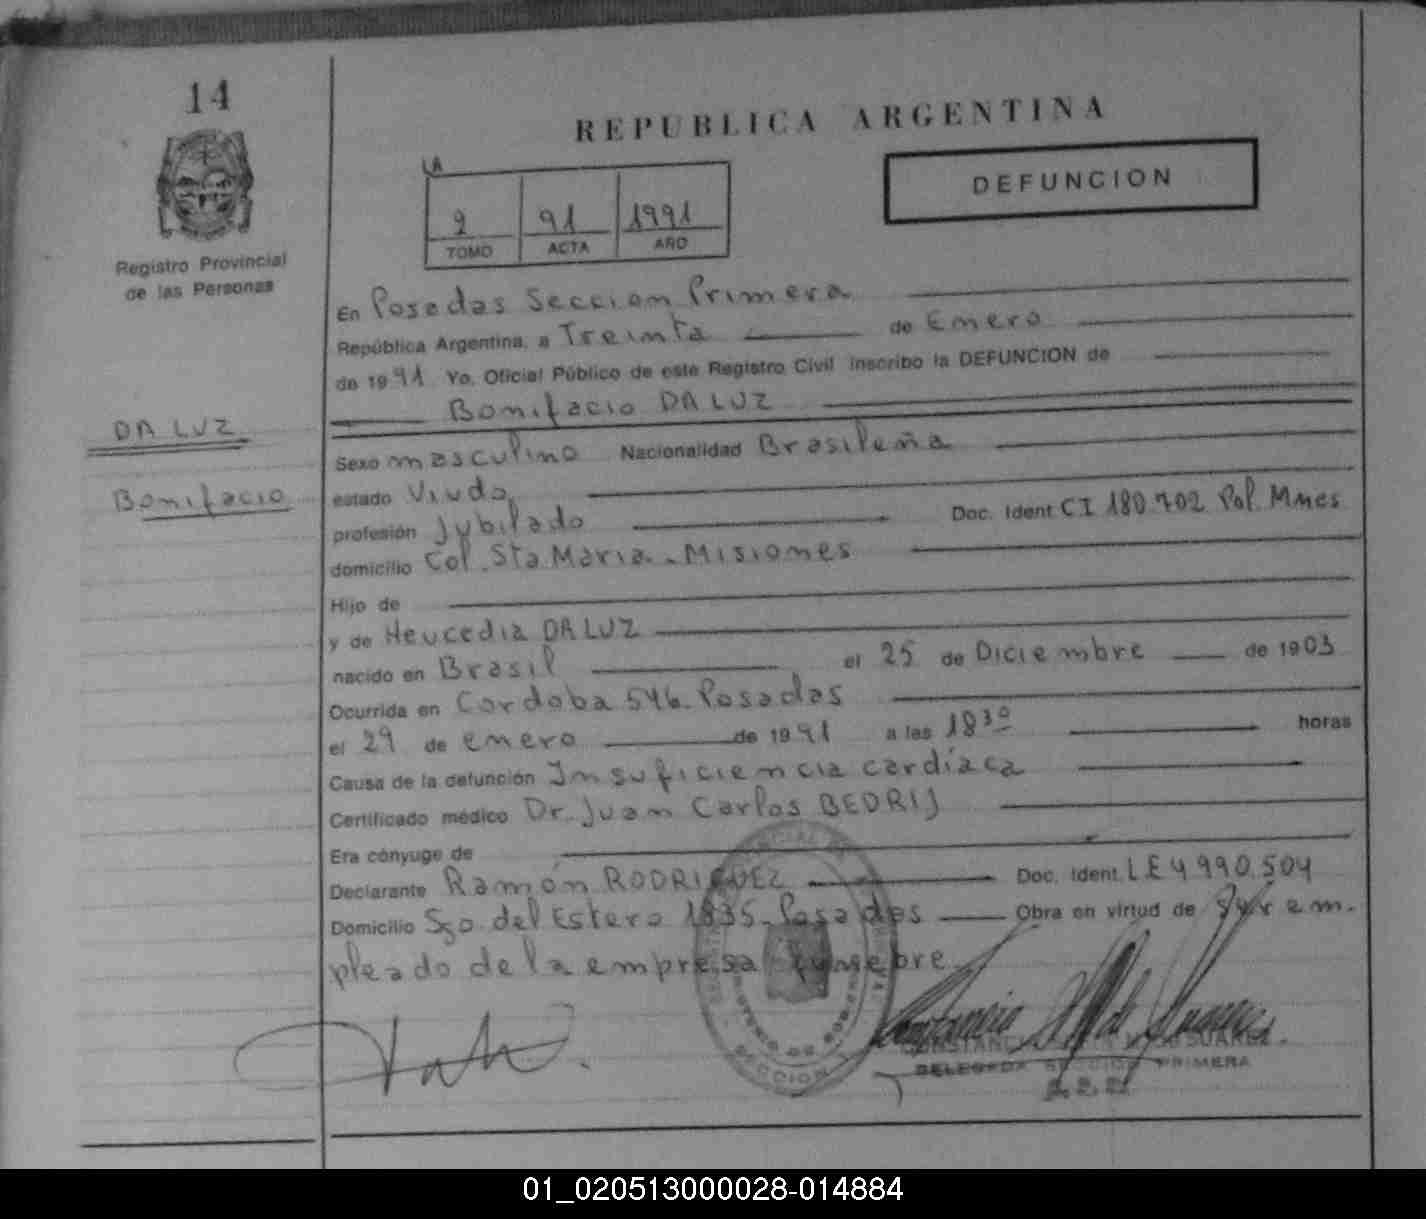 14
REPUBLICA ARGENTINA
DEFUNCION
1A
2 91 1991
TOMO ACTA AÑO
Registro Provincial
de las Personas
En Posadas Seccion Primera
República Argentina, a Treinta de Enero
de 1991 Yo, Oficial Público de este Registro Civil inscribo la DEFUNCION de
Bonifacio DA LUZ
DA LUZ
Bonifacio
Sexo masculino Nacionalidad Brasileña
estado Viudo
profesión Jubilado Doc. Ident CI 180.702 Pol. Mnes
domicilio Col. Sta Maria - Misiones
Hijo de
y de Heucedia DA LUZ
nacido en Brasil el 25 de Diciembre de 1903
Ocurrida en Cordoba 546. Posadas
el 29 de enero de 1991 a las 18³⁰ horas
Causa de la defunción Insuficiencia cardíaca
Certificado médico Dr. Juan Carlos BEDRIJ
Era cónyuge de
Declarante Ramón RODRIGUEZ Doc. Ident. LE 4.990.504
Domicilio Sgo. del Estero 1835 - Posadas Obra en virtud de Ser em-
pleado de la empresa funebre.
SECCION
DELEGADA SECCION PRIMERA
01_020513000028-014884